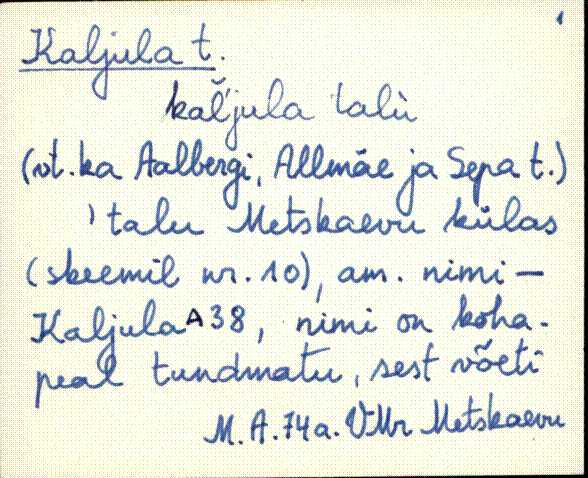 1
Kaljula t.
kal̆'jula talù
(vt. ka Aalbergi, Allmäe ja Sepa t.)
' talu Metskaevu külas
(skeemil nr. 10), am. nimi –
Kaljula A38, nimi on koha-
peal tundmatu, sest võeti
M. A. 74 a. VMr Metskaevu